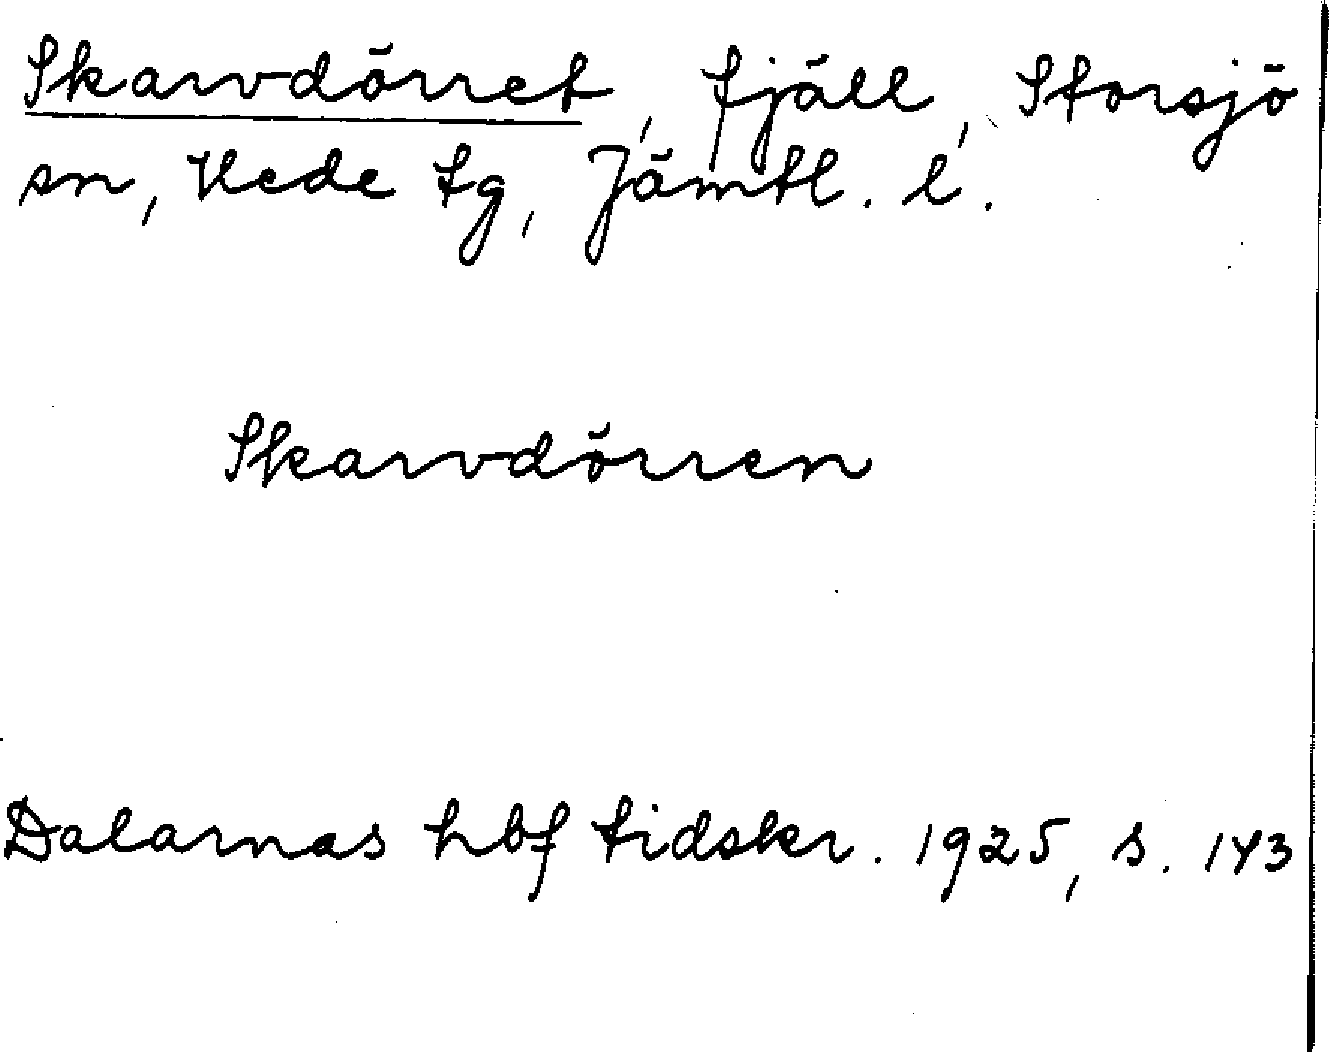 Skarvdörret, fjäll, Storsjö
sn, Hede tg, Jämtl. l.
Skarvdörren
Dalarnas hbf tidskr. 1925, s. 143